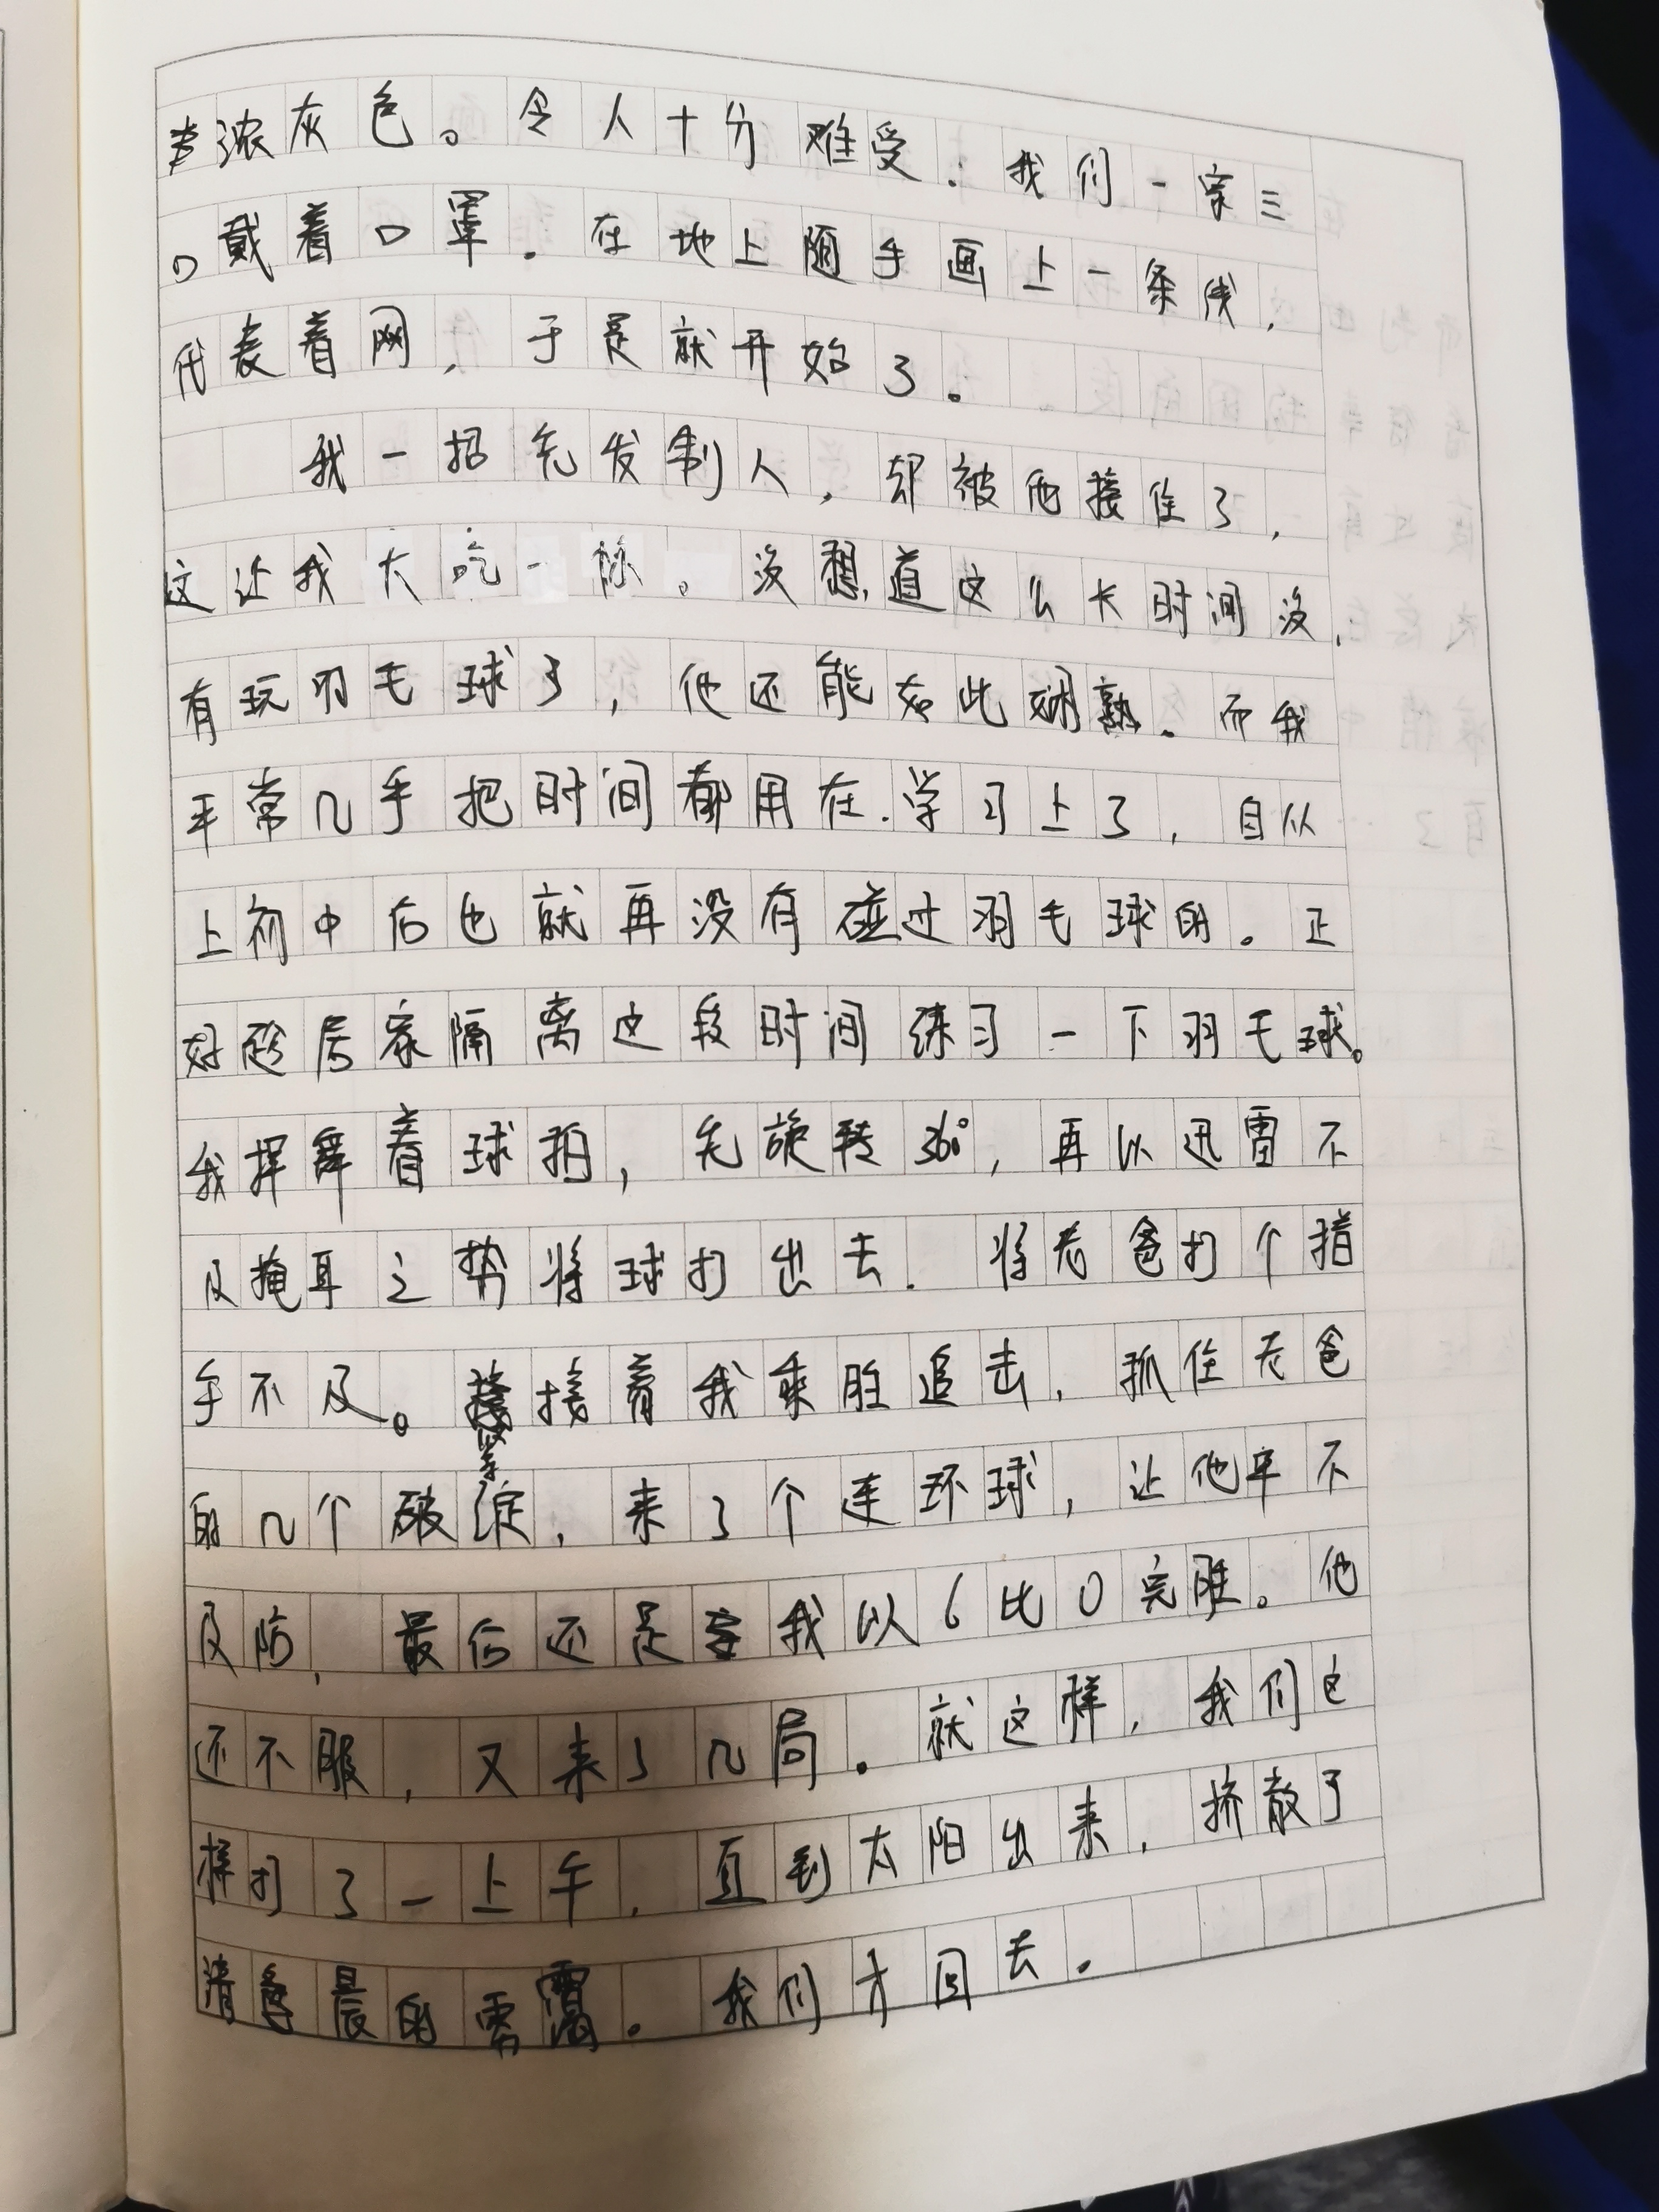 浓灰色。令人十分难受.我们一家三
口戴着口罩.在地上随手画上一条线,
代表着网,于是就开始了。
我一招先发制人,却被他接住了,
这让我大吃一惊。没想道这么长时间没
有玩羽毛球了,他还能如此娴熟.而我
平常几乎把时间都用在学习上了,自从
上初中后也就再没有碰过羽毛球的。正
好趁居家隔离这段时间练习一下羽毛球。
我挥舞着球拍,先旋转360°,再以迅雷不
及掩耳之势将球打出去.将老爸打个措
手不及。接着我乘胜追击,抓住老爸
的几个破绽,来了个连环球,让他卒不
及防,最后还是我以6比0完胜。他
还不服,又来了几局.就这样,我们这
样打了一上午.直到太阳出来,挤散了
清晨的雾霭.我们才回去.